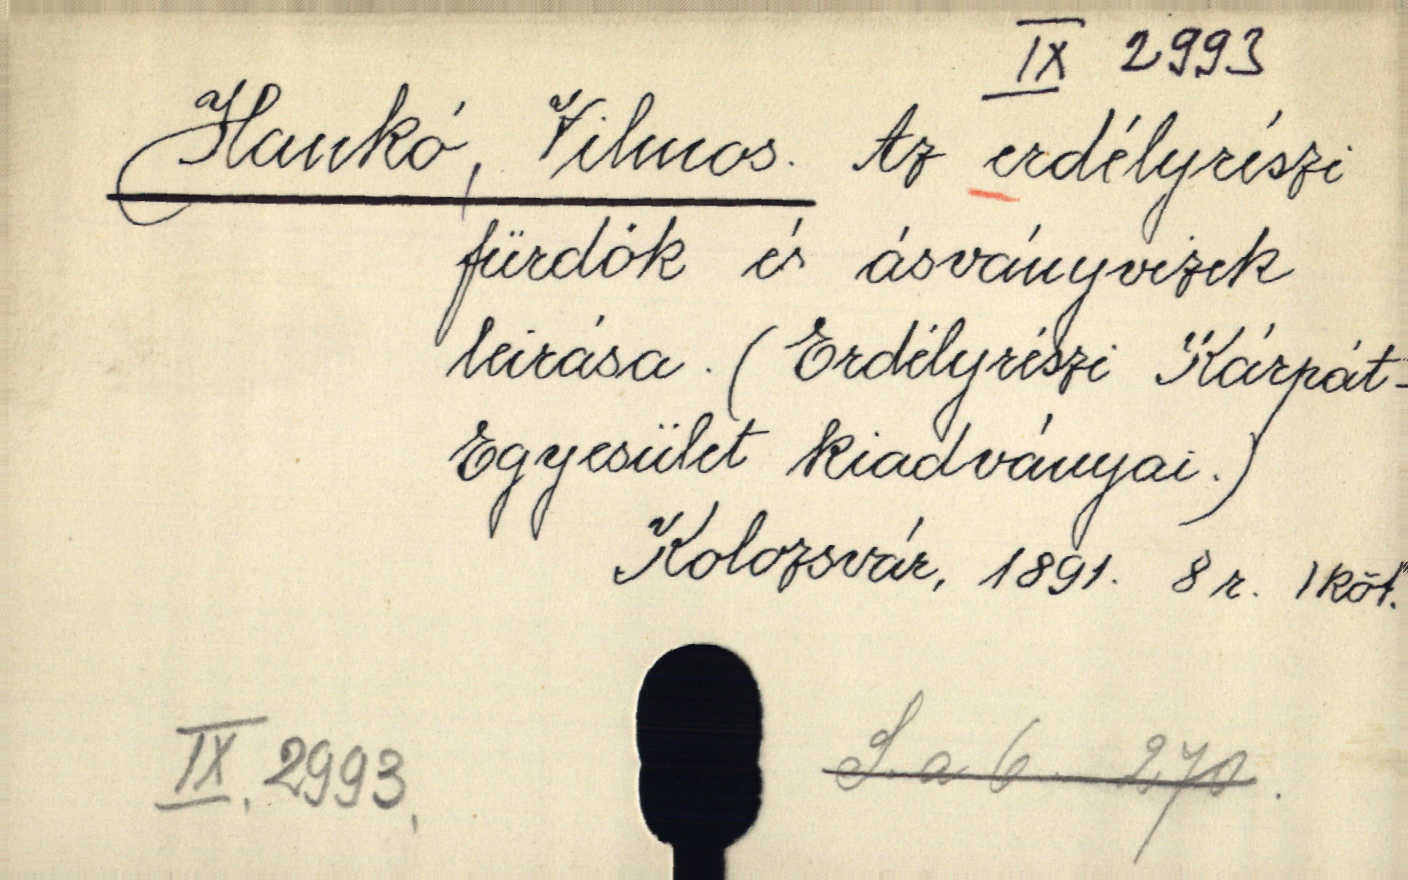 IX 2993
Hankó, Vilmos. Az erdélyrészi
fürdők és ásványvizek
leirása. (Erdélyrészi Kárpát-
Egyesület kiadványai.)
Kolozsvár, 1891. 8 r. 1 köt.
IX. 2993.
S. a 6. 270.